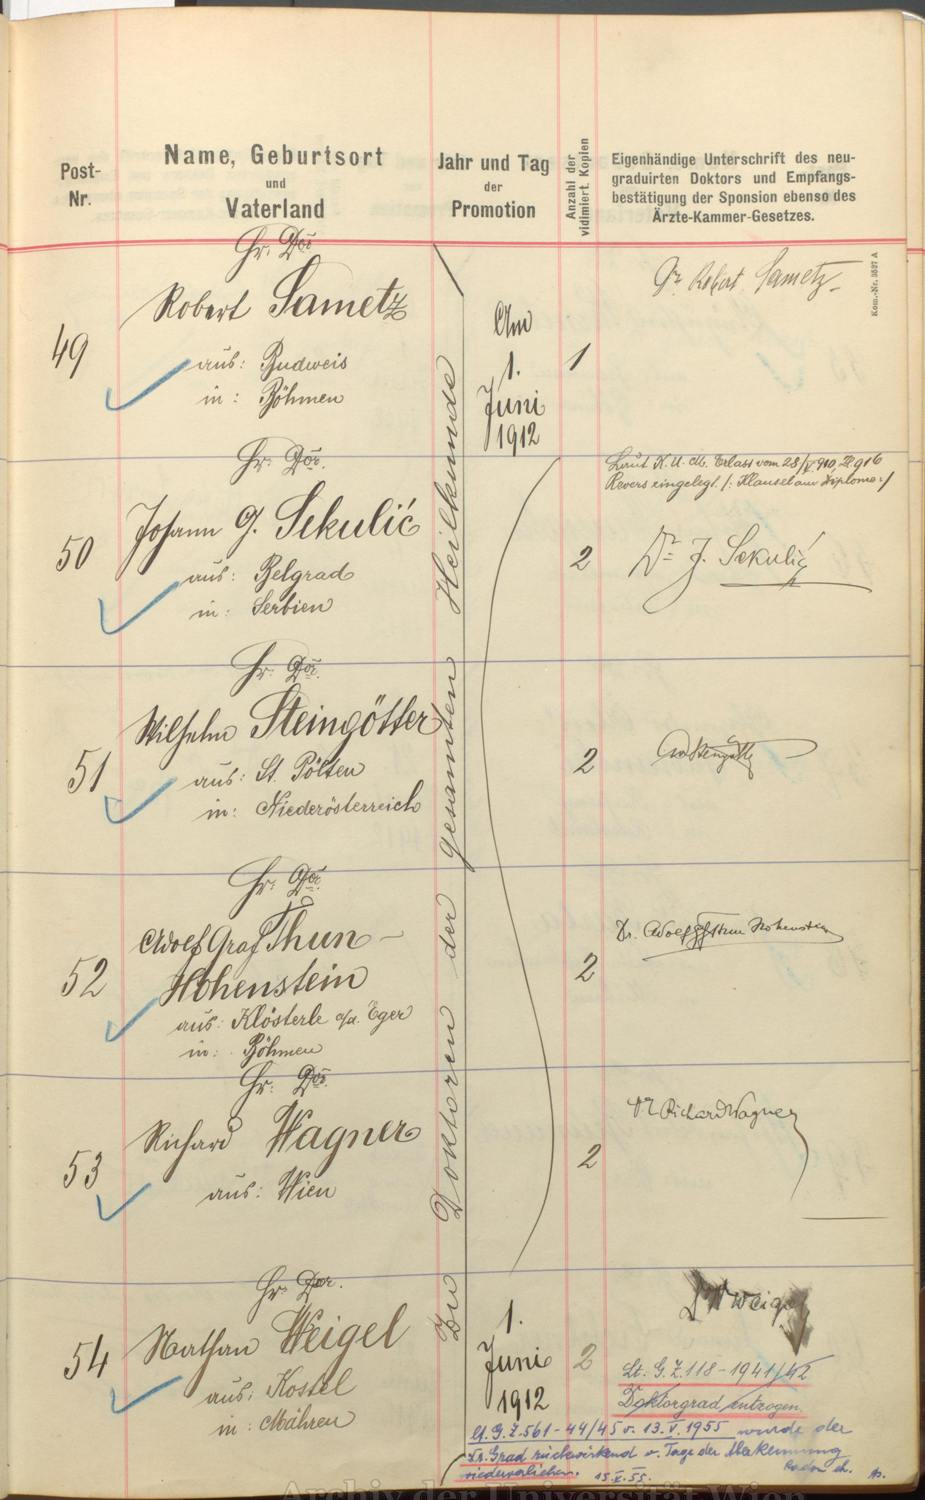 Post-
Nr.
Name, Geburtsort
und
Vaterland
Jahr und Tag
der
Promotion
Anzahl der
vidimiert. Kopien
Eigenhändige Unterschrift des neu-
graduirten Doktors und Empfangs-
bestätigung der Sponsion ebenso des
Ärzte-Kammer-Gesetzes.
Kom.-Nr. 3527 A
Zu Doktoren der gesamten Heilkunde
49
Hr. Dor
Robert Sametz
aus: Budweis
in: Böhmen
Am
1.
Juni
1912
1
Dr. Robert Sametz
50
Hr. Dor.
Johann G. Sekulić
aus: Belgrad
in: Serbien
2
Laut K. U. M. Erlass vom 28/V 910, Zl. 916
Revers eingelegt /: Klausel am Diplome :/
Dr J. Sekulić
51
Hr. Dor.
Wilhelm Steingötter
aus: St. Pölten
in: Niederösterreich
2
52
Hr. Dor.
Adolf Graf Thun-
Hohenstein
aus: Klösterle a/a. Eger
in: Böhmen
2
Dr. Adolf Thun Hohenstein
53
Hr. Dor.
Richard Wagner
aus: Wien
2
Dr Richard Wagner
54
Hr. Dor.
Nathan Weigel
aus: Kostel
in: Mähren
1.
Juni
1912
2
Dr N Weigel
Lt. G.Z. 118-1941/42
Doktorgrad entzogen.
Lt. G.Z. 561-44/45 v. 13.V.1955 wurde der
Dr. Grad rückwirkend v. Tage der Aberkennung
wiederverliehen. 15.X.55.
Archiv der Universität Wien